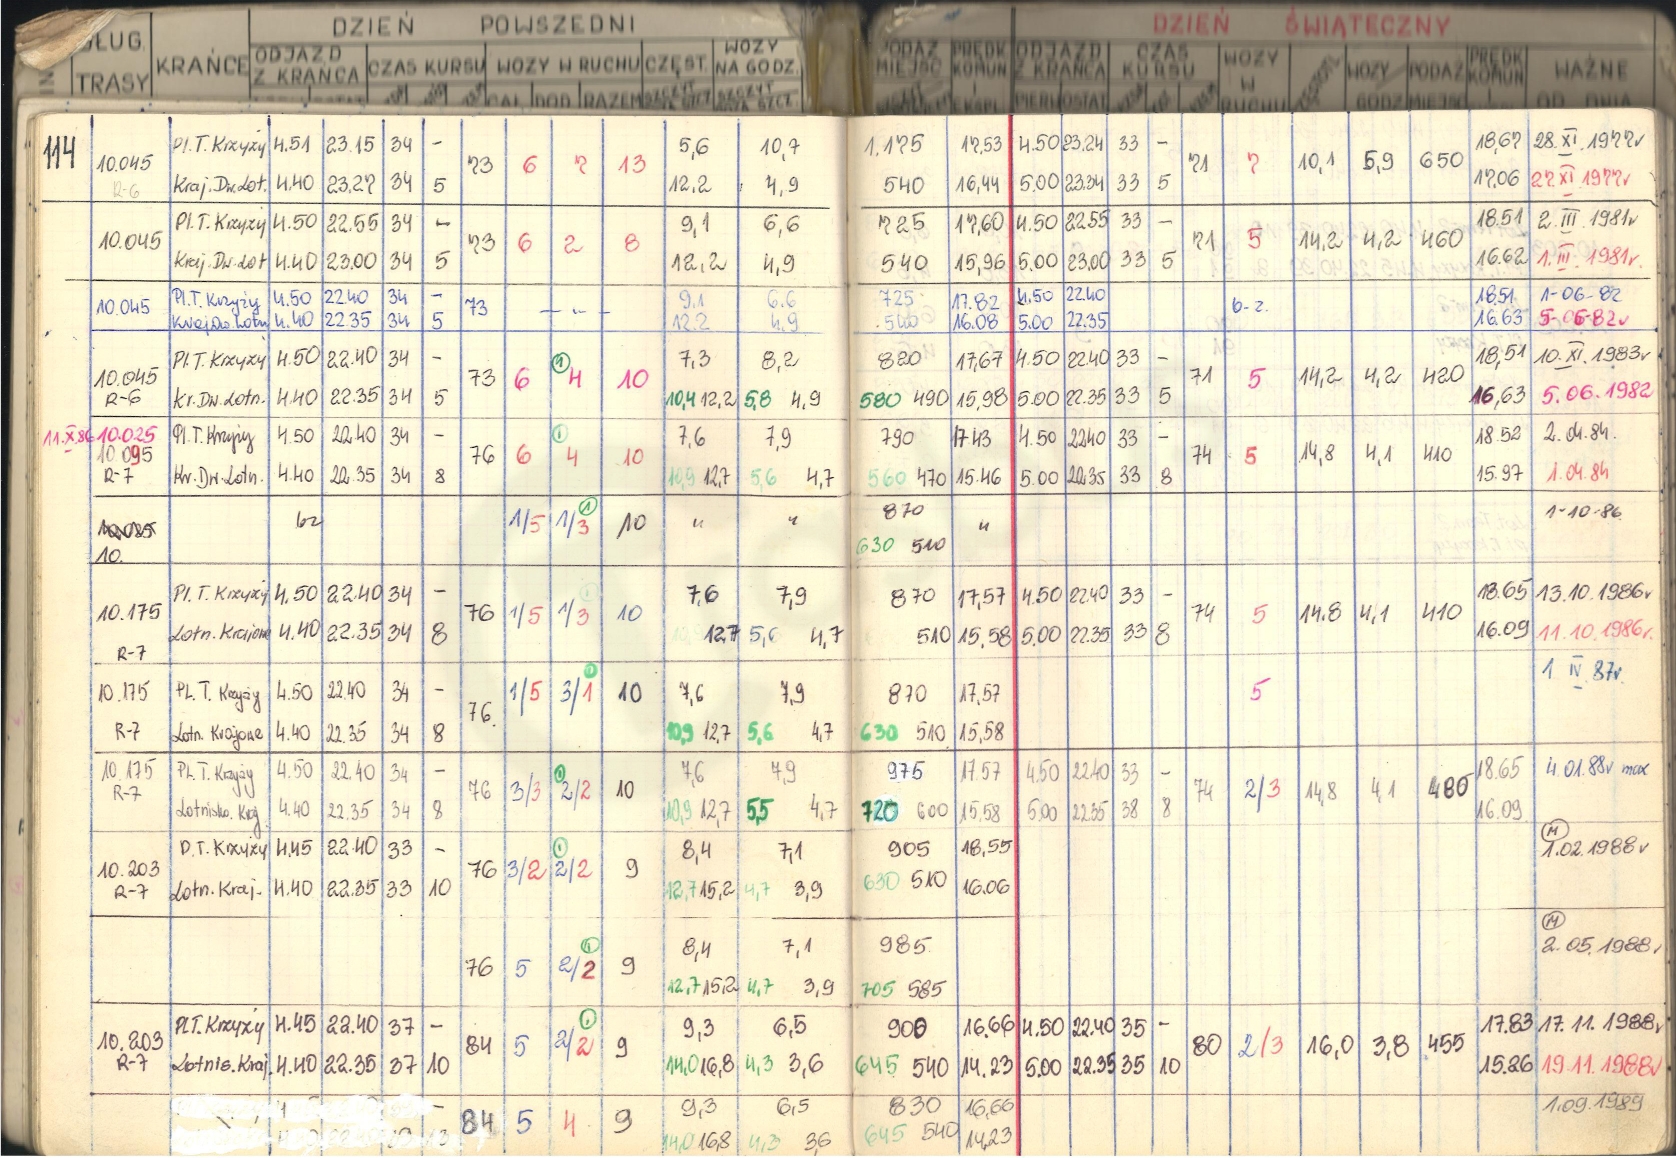 DZIEŃ POWSZEDNI DZIEŃ ŚWIĄTECZNY
DŁUG. TRASY KRAŃCE ODJAZD Z KRAŃCA CZAS KURSU WOZY W RUCHU CZĘST. WOZY NA GODZ. PODAŻ MIEJSC PRĘDK. KOMUN. EKSPL. ODJAZD Z KRAŃCA CZAS KURSU WOZY W RUCHU WOZY GODZ PODAŻ MIEJSC PRĘDK KOMUN WAŻNE OD DNIA
114 10.045 Pl.T. Krzyży 4.51 23.15 34 - 73 6 7 13 5,6 10,7 1.175 17,53 4.50 23.24 33 - 71 7 10,1 5,9 650 18,67 28.XI.1977r
R-6 Kraj.Dw.Lot. 4.40 23.27 34 5 12.2 4,9 540 16,44 5.00 23.34 33 5 17.06 27 XI 1977r
10.045 Pl.T. Krzyży 4.50 22.55 34 - 73 6 2 8 9,1 6,6 725 17,60 4.50 22.55 33 - 71 5 14,2 4,2 460 18.51 2.III.1981r
Kraj.Dw.Lot 4.40 23.00 34 5 12,2 4,9 540 15,96 5.00 23.00 33 5 16.62 1.III.1981r.
10.045 Pl.T. Krzyży 4.50 22.40 34 - 73 - " - 9.1 6.6 725 17.82 4.50 22.40 b-z. 18,51 1-06-82
Kraj.Dw.Lotn 4.40 22.35 34 5 12.2 4.9 540 16.08 5.00 22.35 16.63 5-06-82r
10.045 Pl.T. Krzyży 4.50 22.40 34 - 73 6 (1) 4 10 7,3 8,2 820 17,67 4.50 22.40 33 - 71 5 14,2 4,2 420 18,51 10.XI.1983r
R-6 Kr.Dw.Lotn. 4.40 22.35 34 5 10,4 12,2 5,8 4,9 580 490 15,98 5.00 22.35 33 5 16,63 5.06.1982
11.X.86 10.025 Pl.T. Krzyży 4.50 22.40 34 - 76 6 (1) 4 10 7,6 7,9 790 17.43 4.50 22.40 33 - 74 5 14,8 4,1 410 18.52 2.04.84.
10.095
R-7 Kr.Dw.Lotn. 4.40 22.35 34 8 10,9 12,7 5,6 4,7 560 470 15.46 5.00 22.35 33 8 15.97 1.04.84
bz 1/5 1/3 (1) 10 " " 870 " 1-10-86
10. 630 510
10.175 Pl.T. Krzyży 4.50 22.40 34 - 76 1/5 1/3 10 7,6 7,9 870 17,57 4.50 22.40 33 - 74 5 14.8 4,1 410 18.65 13.10.1986r
R-7 Lotn. Krajowe 4.40 22.35 34 8 12,7 5,6 4,7 510 15,58 5.00 22.35 33 8 16.09 11.10.1986r.
10.175 Pl. T. Krzyży 4.50 22.40 34 - 76. 1/5 3/1 (1) 10 7,6 7,9 870 17,57 5 1 IV 87r.
R-7 Lotn. Krajowe 4.40 22.35 34 8 10,9 12,7 5,6 4,7 630 510 15,58
10.175 Pl. T. Krzyży 4.50 22.40 34 - 76 3/3 2/2 (1) 10 7,6 7,9 975 17.57 4.50 22.40 33 - 74 2/3 14,8 4,1 480 18.65 4.01.88r max
R-7 Lotnisko. Kraj. 4.40 22.35 34 8 10,9 12,7 5,5 4,7 720 600 15,58 5.00 22.35 38 8 16.09.
10.203 P.T. Krzyży 4.45 22.40 33 - 76 3/2 2/2 (1) 9 8,4 7,1 905 18,55 (M) 1.02.1988r
R-7 Lotn. Kraj. 4.40 22.35 33 10 12,7 15,2 4,7 3,9 630 510 16.06
76 5 2/2 (1) 9 8,4 7,1 985 (M) 2.05.1988r
12,7 15,2 4,7 3,9 705 585
10.203 Pl.T. Krzyży 4.45 22.40 37 - 84 5 2/2 (1) 9 9,3 6,5 900 16.66 4.50 22.40 35 - 80 2/3 16,0 3,8 455 17.83 17.11.1988r
R-7 Lotnis.Kraj. 4.40 22.35 37 10 14,0 16,8 4,3 3,6 645 540 14.23 5.00 22.35 35 10 15.26 19.11.1988r
84 5 4 9 9,3 6,5 830 16,66 1.09.1989
14,0 16,8 4,3 36 645 540 14,23